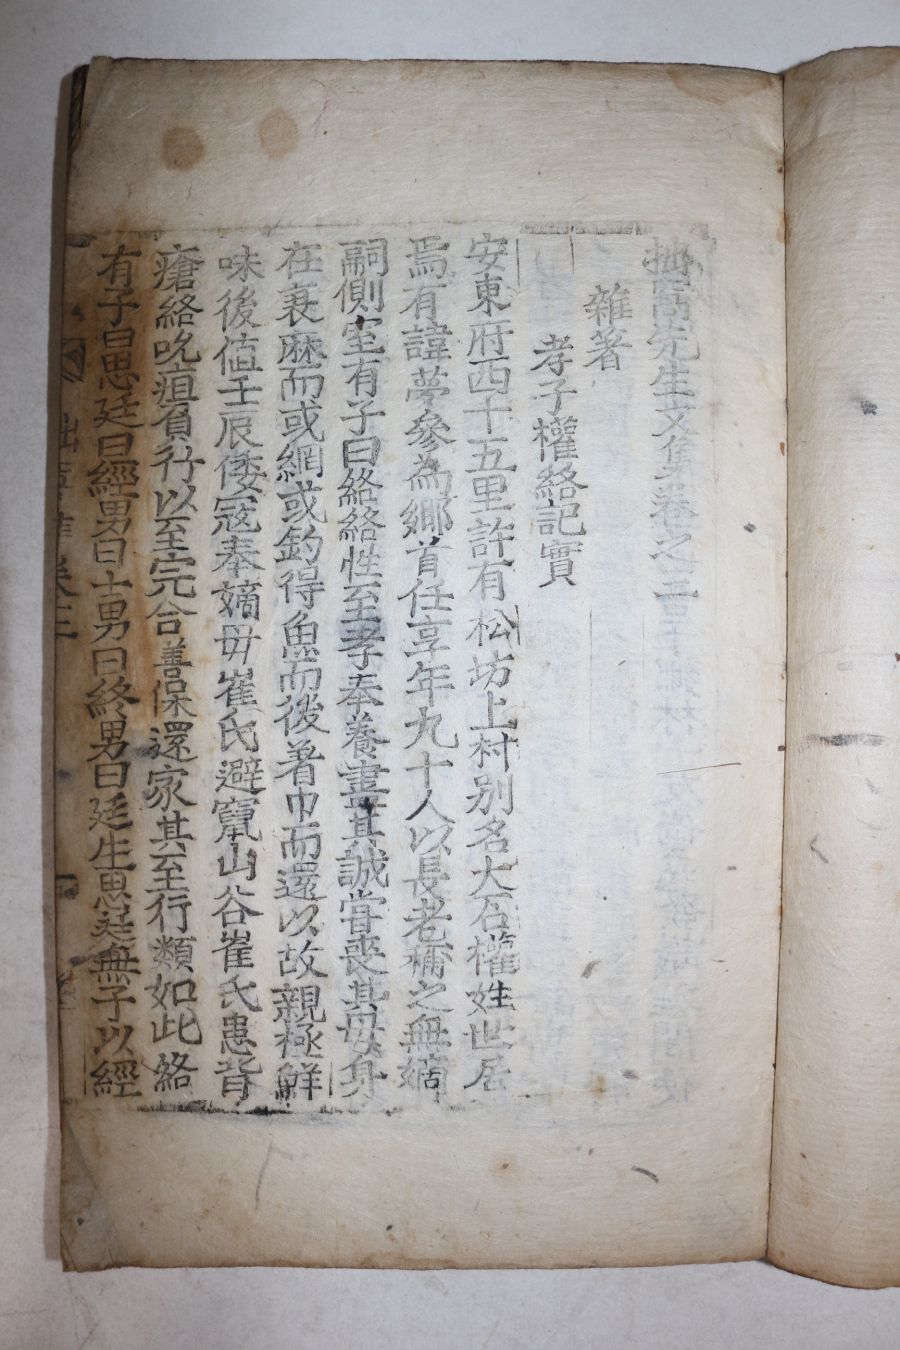 拙齋先生文集卷之三
雜著
孝子權絡記實
安東府西十五里許有松坊上村別名大石權姓世居
焉有諱夢參為鄉首任享年九十人以長老稱之無嫡
嗣側室有子曰絡絡性至孝奉養盡其誠嘗喪其母身
在衰麻而或網或釣得魚而後著巾而還以故親極鮮
味後值壬辰倭寇奉嫡母崔氏避竄山谷崔氏患背
瘡絡吮疽負行以至完合善保還家其至行類如此絡
有子曰思廷曰經男曰士男曰終男曰廷生思廷無子以經